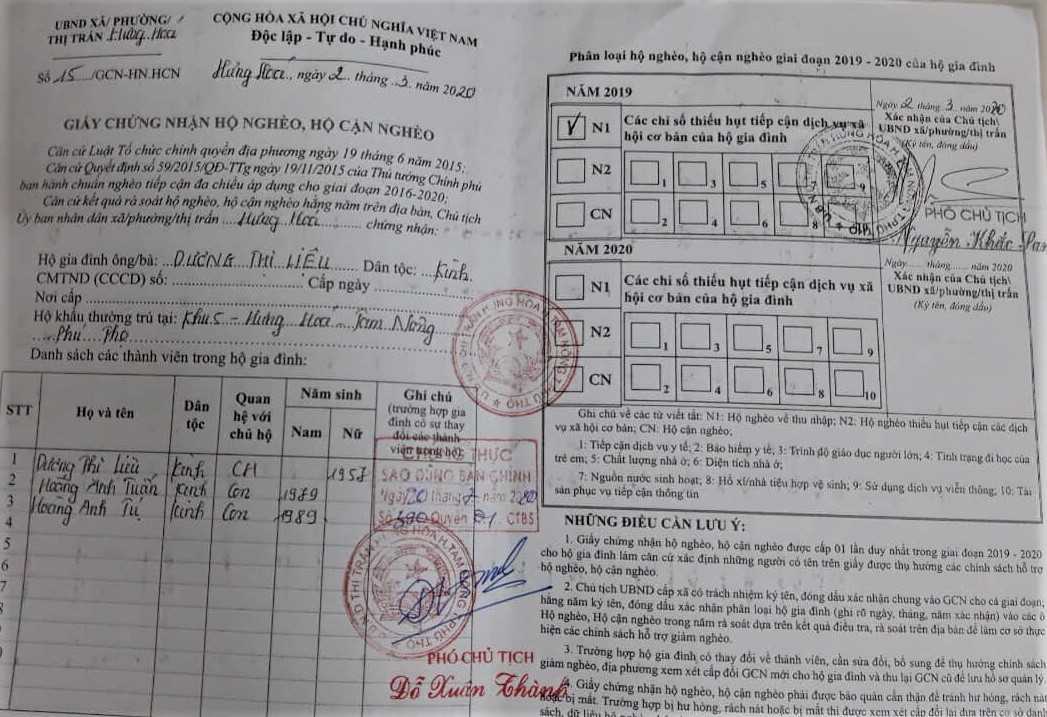 UBND XÃ/ PHƯỜNG/
THỊ TRẤN Hưng Hoá
Số 15 /GCN-HN.HCN
CỘNG HÒA XÃ HỘI CHỦ NGHĨA VIỆT NAM
Độc lập - Tự do - Hạnh phúc
Hưng Hoá, ngày 2 tháng 3 năm 2020
GIẤY CHỨNG NHẬN HỘ NGHÈO, HỘ CẬN NGHÈO
Căn cứ Luật Tổ chức chính quyền địa phương ngày 19 tháng 6 năm 2015;
Căn cứ Quyết định số 59/2015/QĐ-TTg ngày 19/11/2015 của Thủ tướng Chính phủ
ban hành chuẩn nghèo tiếp cận đa chiều áp dụng cho giai đoạn 2016-2020;
Căn cứ kết quả rà soát hộ nghèo, hộ cận nghèo hằng năm trên địa bàn, Chủ tịch
Ủy ban nhân dân xã/phường/thị trấn Hưng Hoá chứng nhận:
Hộ gia đình ông/bà: DƯƠNG THỊ LIỄU Dân tộc: Kinh
CMTND (CCCD) số: Cấp ngày
Nơi cấp
Hộ khẩu thường trú tại: Khu 5 - Hưng Hoá - Tam Nông
Phú Thọ
Danh sách các thành viên trong hộ gia đình:
STT Họ và tên Dân tộc Quan hệ với chủ hộ Năm sinh Nam Nữ Ghi chú (trường hợp gia đình có sự thay đổi các thành viên trong hộ)
1 Dương Thị Liễu Kinh CH 1957
2 Hoàng Anh Tuấn Kinh Con 1989
3 Hoàng Anh Tú Kinh Con 1989
4
5
6
7
THỰC
SAO ĐÚNG BẢN CHÍNH
Ngày 20 tháng năm
Số 390 Quyển 01 CTBS
PHÓ CHỦ TỊCH
Đỗ Xuân Thành
Phân loại hộ nghèo, hộ cận nghèo giai đoạn 2019 - 2020 của hộ gia đình
NĂM 2019
Ngày 2 tháng 3 năm 2020
Xác nhận của Chủ tịch
UBND xã/phường/thị trấn
(Ký tên, đóng dấu)
V N1 Các chỉ số thiếu hụt tiếp cận dịch vụ xã
hội cơ bản của hộ gia đình
N2 1 3 5 7 9
CN 2 4 6 8
PHÓ CHỦ TỊCH
Nguyễn Khắc
NĂM 2020
Ngày tháng năm 2020
Xác nhận của Chủ tịch
UBND xã/phường/thị trấn
(Ký tên, đóng dấu)
N1 Các chỉ số thiếu hụt tiếp cận dịch vụ xã
hội cơ bản của hộ gia đình
N2 1 3 5 7 9
CN 2 4 6 8 10
Ghi chú về các từ viết tắt: N1: Hộ nghèo về thu nhập; N2: Hộ nghèo thiếu hụt tiếp cận các dịch
vụ xã hội cơ bản; CN: Hộ cận nghèo,
1: Tiếp cận dịch vụ y tế; 2: Bảo hiểm y tế; 3: Trình độ giáo dục người lớn; 4: Tình trạng đi học của
trẻ em; 5: Chất lượng nhà ở; 6: Diện tích nhà ở;
7: Nguồn nước sinh hoạt; 8: Hố xí/nhà tiêu hợp vệ sinh; 9: Sử dụng dịch vụ viễn thông; 10: Tài
sản phục vụ tiếp cận thông tin
NHỮNG ĐIỀU CẦN LƯU Ý:
1. Giấy chứng nhận hộ nghèo, hộ cận nghèo được cấp 01 lần duy nhất trong giai đoạn 2019 - 2020
cho hộ gia đình làm căn cứ xác định những người có tên trên giấy được thụ hưởng các chính sách hỗ trợ
hộ nghèo, hộ cận nghèo.
2. Chủ tịch UBND cấp xã có trách nhiệm ký tên, đóng dấu xác nhận chung vào GCN cho cả giai đoạn;
hằng năm ký tên, đóng dấu xác nhận phân loại hộ gia đình (ghi rõ ngày, tháng, năm xác nhận) vào các ô
Hộ nghèo, Hộ cận nghèo trong năm rà soát dựa trên kết quả điều tra, rà soát trên địa bàn để làm cơ sở thực
hiện các chính sách hỗ trợ giảm nghèo.
3. Trường hợp hộ gia đình có thay đổi về thành viên, cần sửa đổi, bổ sung để thụ hưởng chính sách
giảm nghèo, địa phương xem xét cấp đổi GCN mới cho hộ gia đình và thu lại GCN cũ để lưu hồ sơ quản lý.
4. Giấy chứng nhận hộ nghèo, hộ cận nghèo phải được bảo quản cẩn thận để tránh hư hỏng, rách nát
hoặc bị mất. Trường hợp bị hư hỏng, rách nát hoặc bị mất thì được xem xét cấp đổi lại dựa trên cơ sở danh
sách, dữ liệu hộ nghèo